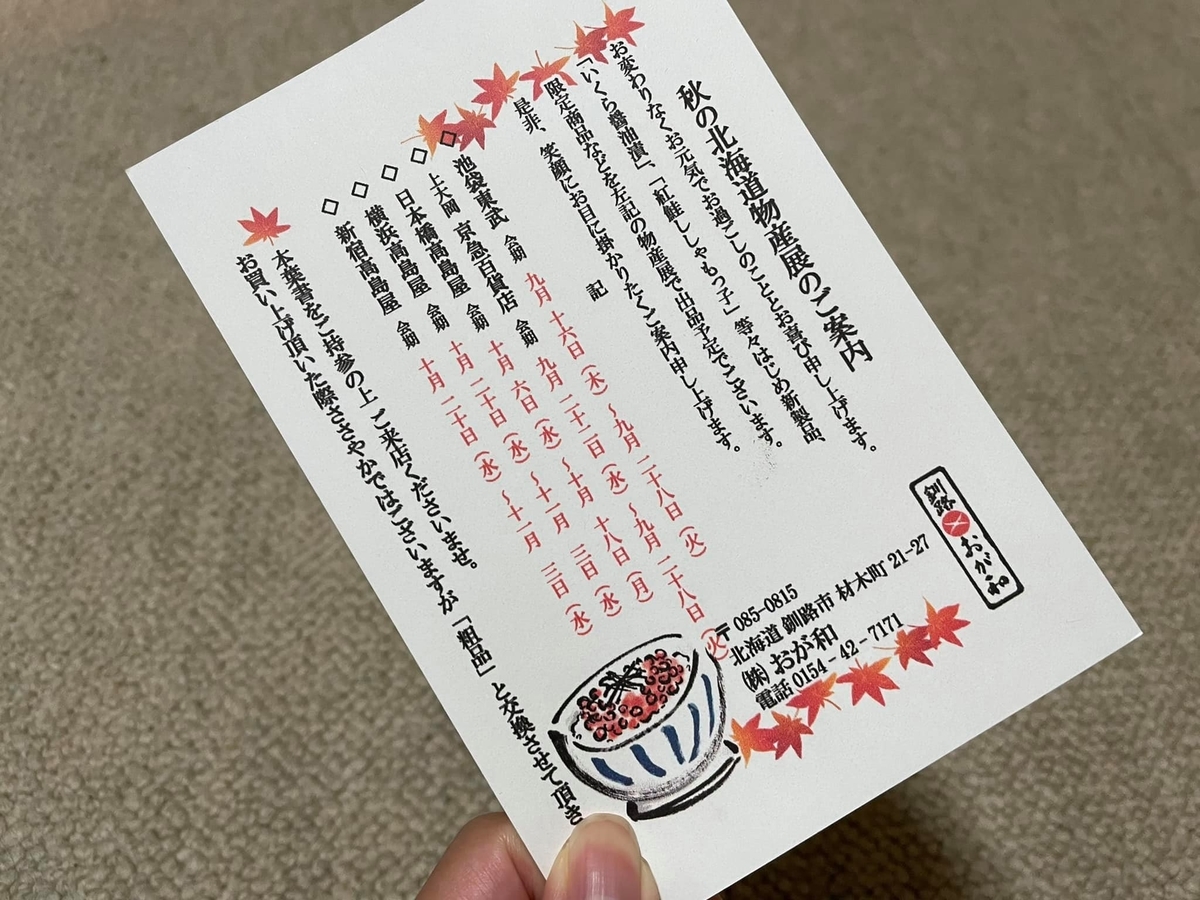 秋の北海道物産展のご案内
お変わりなくお元気でお過ごしのこととお喜び申し上げます。
「いくら醤油漬」、「紅鮭ししゃもっ子」等々はじめ新製品、
限定商品などを左記の物産展で出品予定でございます。
是非、笑顔にお目に掛かりたくご案内申し上げます。
記
◇池袋東武 会期 九月 十六日(木)～九月 二十八日(火)
◇上大岡 京急百貨店 会期 九月 二十二日(水)～九月 二十八日(火)
◇日本橋高島屋 会期 十月 六日(水)～十月 十八日(月)
◇横浜高島屋 会期 十月 二十日(水)～十一月 三日(水)
◇新宿高島屋 会期 十月 二十日(水)～十一月 三日(水)
本葉書をご持参の上 ご来店くださいませ。
お買い上げ頂いた際ささやかではございますが「粗品」と交換させて頂き
釧路 おが和
〒085-0815
北海道 釧路市 材木町 21-27
(株) おが和
電話 0154-42-7171